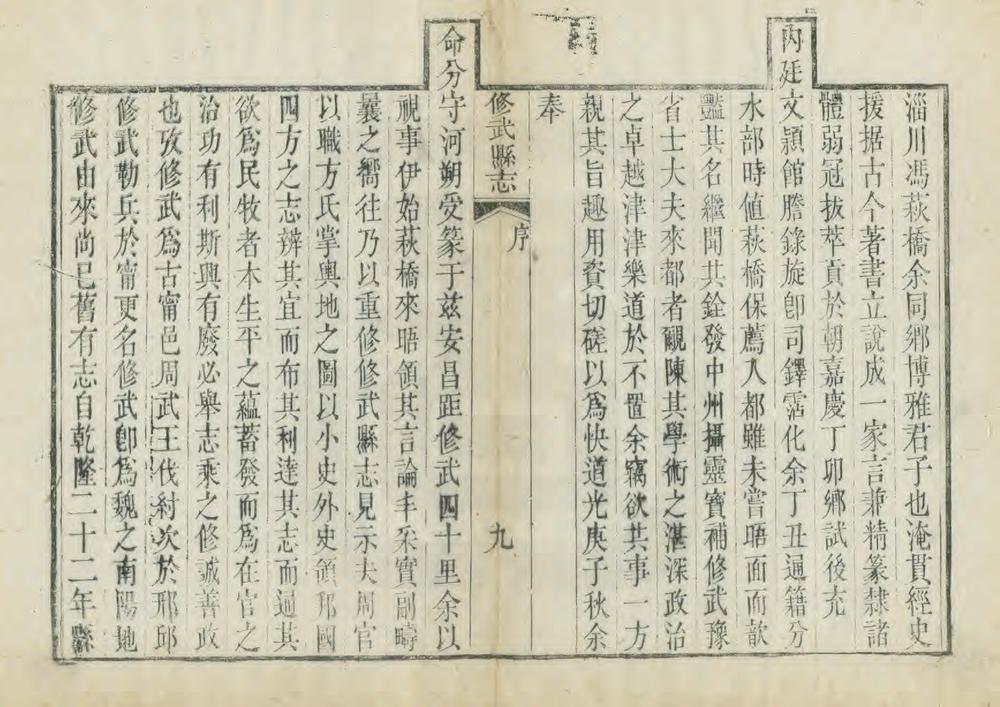 淄川馮萩橋余同鄉博雅君子也淹貫經史
援据古今著書立說成一家言兼精篆隸諸
體弱冠拔萃貢於朝嘉慶丁卯鄉試後充
內廷文頴館謄錄旋卽司鐸霑化余丁丑通籍分
水部時値萩橋保薦入都雖未嘗晤面而歆
豔其名繼聞其銓發中州攝靈寶補修武豫
省士大夫來都者覼陳其學術之湛深政治
之卓越津津樂道於不置余竊欲共事一方
親其旨趣用資切磋以爲快道光庚子秋余
奉
修武縣志
序
九
命分守河朔受篆于兹安昌距修武四十里余以
視事伊始萩橋來晤領其言論丰采實副疇
曩之嚮往乃以重修修武縣志見示夫周官
以職方氏掌輿地之圖以小史外史領邦國
四方之志辨其宜而布其利達其志而通其
欲爲民牧者本生平之蘊蓄發而爲在官之
治功有利斯興有廢必舉志乘之修誠善政
也攷修武爲古甯邑周武王伐紂次於邢邱
修武勒兵於甯更名修武卽爲魏之南陽地
修武由來尚已舊有志自乾隆二十二年縣